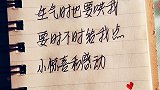 生气时也要哄我
要时不时给我点
小惊喜和感动